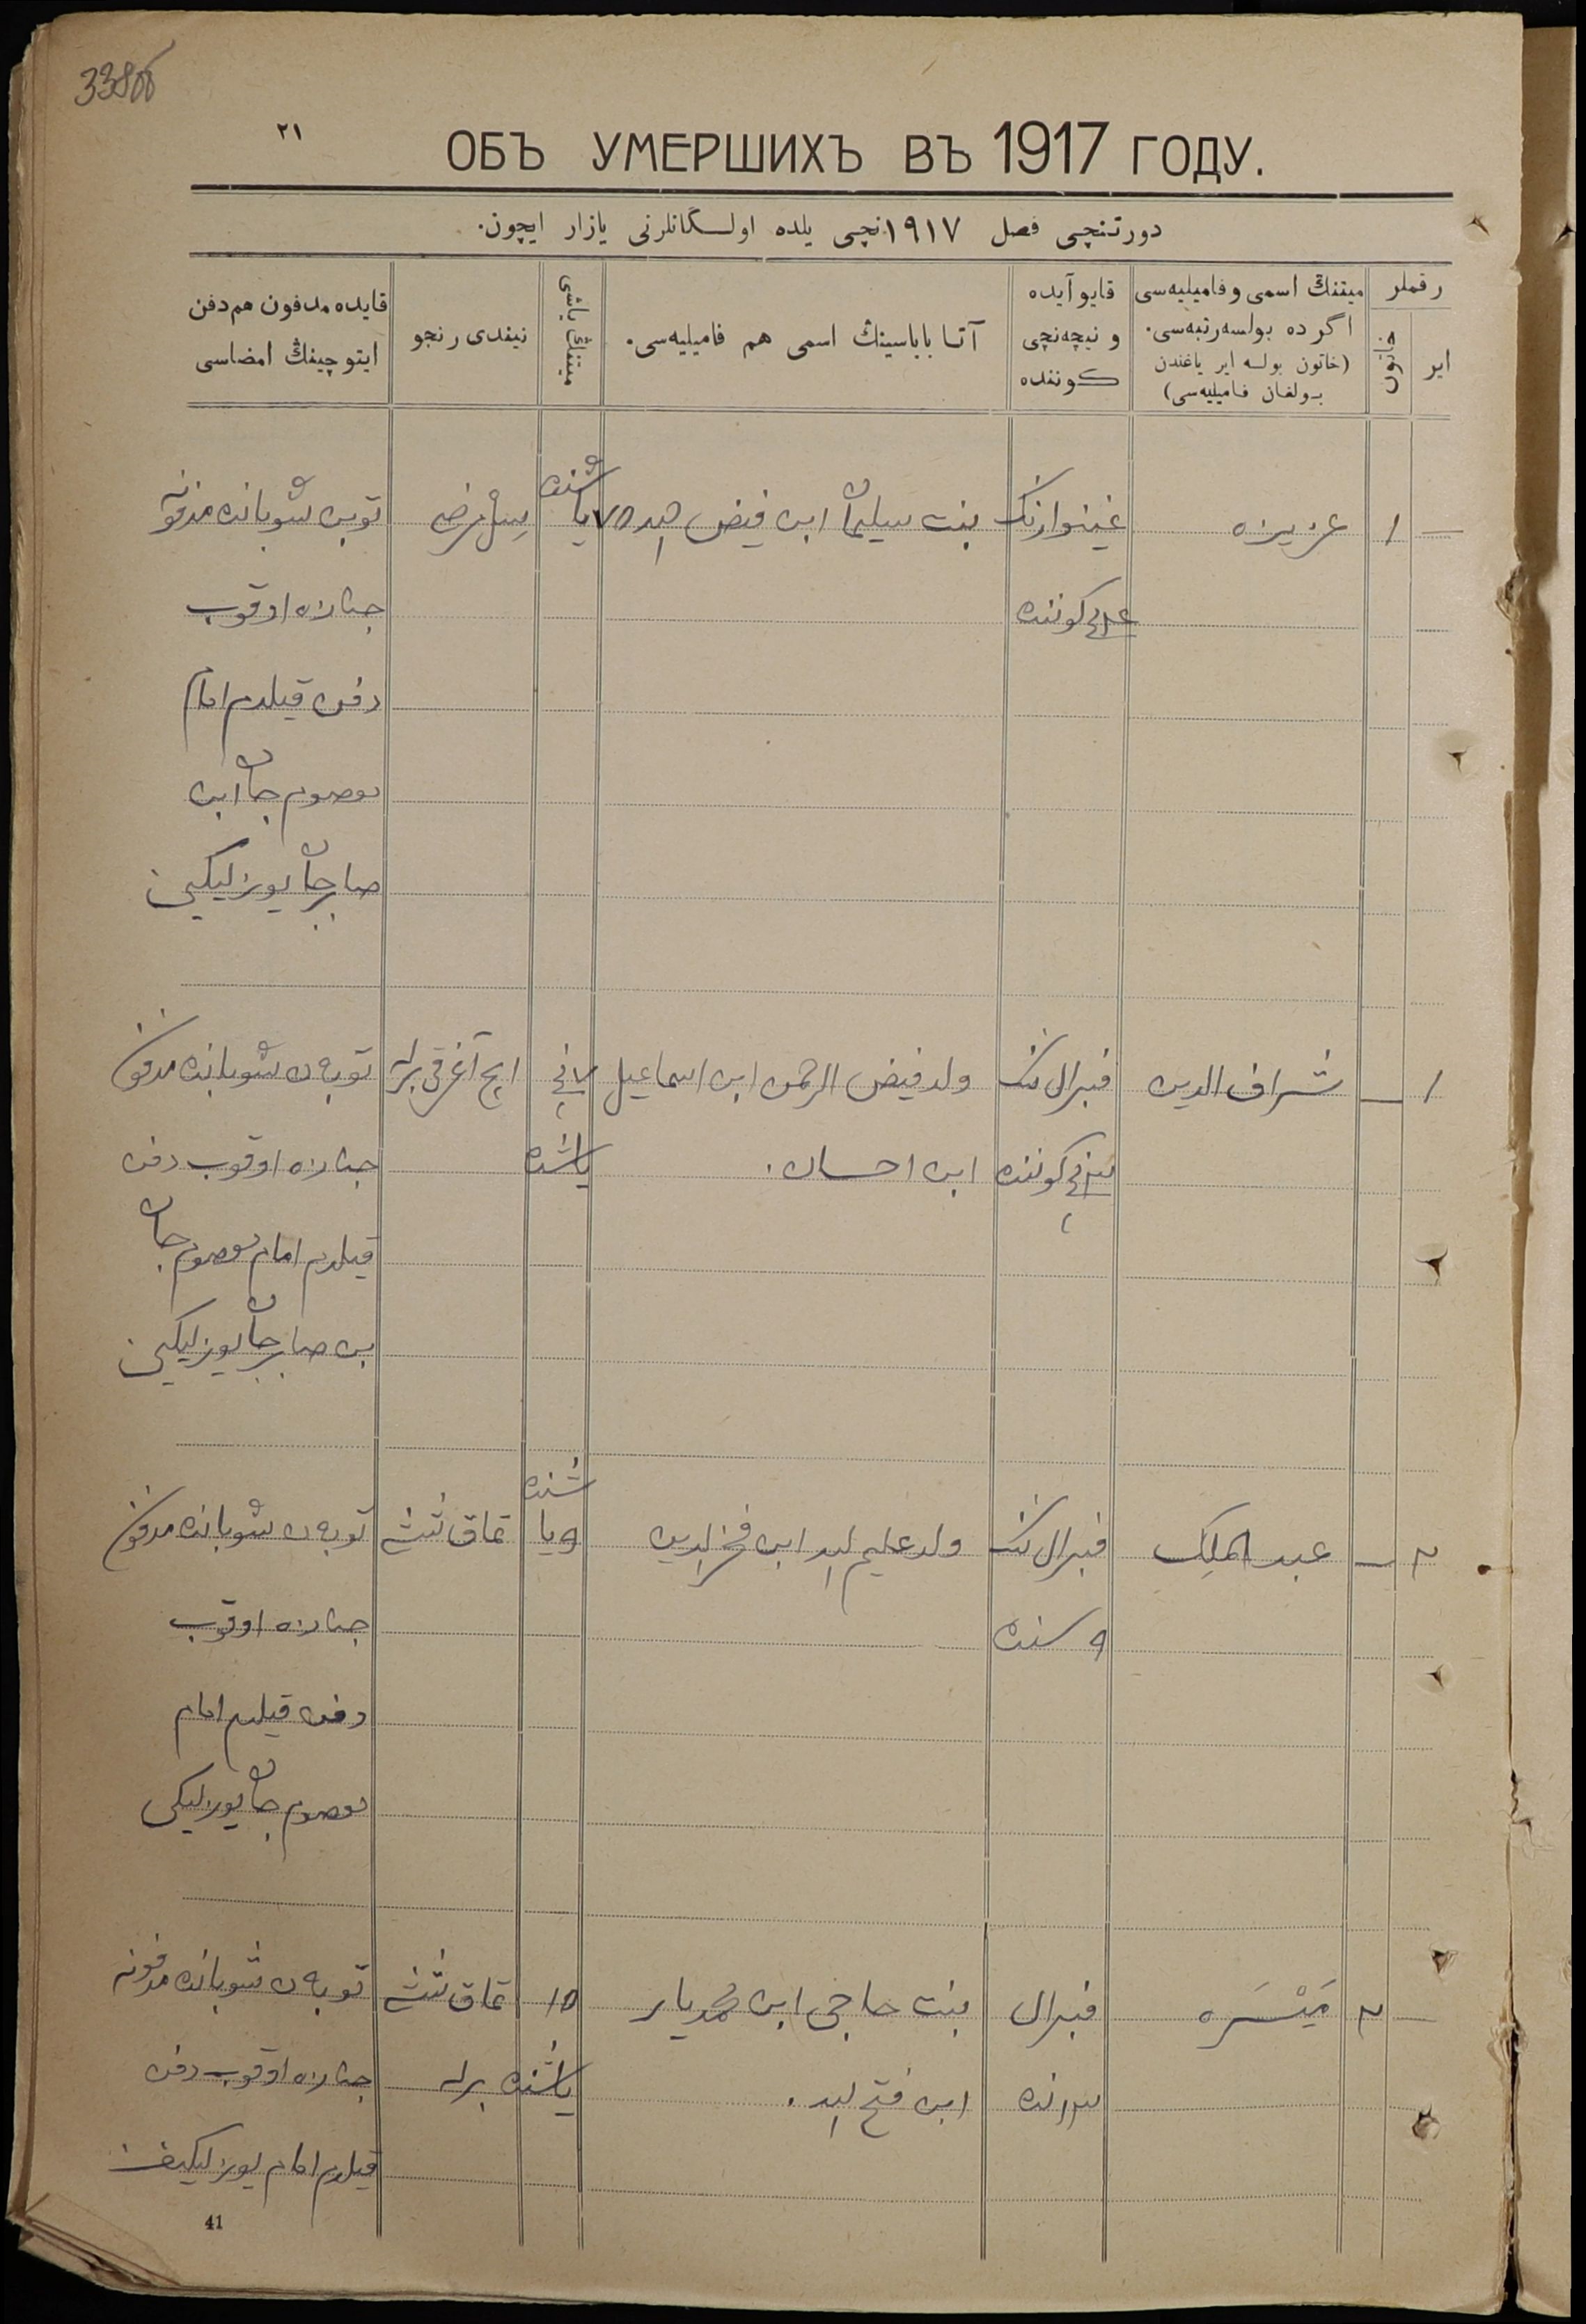 338об
٢١
ОБЪ УМЕРШИХЪ ВЪ 1917 ГОДУ.
دورتنچی فصل ١٩١٧نچی یلده اولـگانلرنی یازار ایچون.
رقملر
ایر
خاتون
میتنڭ اسمی و فامیلیەسی
اگر ده بولسه رتبەسی.
(خاتون بولسه ایر یاغندن
بولغان فامیلیەسی)
قایو آیده
و نیچەنچی
کوننده
آتا باباسینڭ اسمی هم فامیلیەسی.
میتنڭ یاشی
نیندی رنجو
قایده مدفون هم دفن
ایتوچینڭ امضاسی
١
عزیزه
غینوارنڭ
کوننده
بنت سیلیمان ابن فیض الله
٧٥ یاشنده
توبن شوبانده مدفونه
جنازه اوقوب
دفن قیلدم امام
معصوم جان ابن
صابرجان یوزلیکیف
١
شراف الدین
فبرال ننڭ
کوننده
ولد فیض الرحمن ابن اسماعیل
ابن احسان.
٧ نچی
یاشنده
ایچ آغرقی برله
توبەن شوبانده مدفون
جنازه اوقوب دفن
قیلدم امام معصوم جان
بن صابرجان یوزلیکیف
٢
عبد الملك
فبرال ننڭ
٩ سنده
ولد علیم الله ابن فخر الدین
٩ یاشنده
تماق
توبەن شوبانده مدفون
جنازه اوقوب
دفن قیلدم امام
معصوم جان یوزلیکی
٢
مَيْسَره
فبرال
بنت حاجی ابن محمدیار
ابن فتح الله.
١٥
یاشنده
تماق
برله
توبەن شوبانده مدفونه
جنازه اوقوب دفن
قیلدم امام یوزلیکیف
41